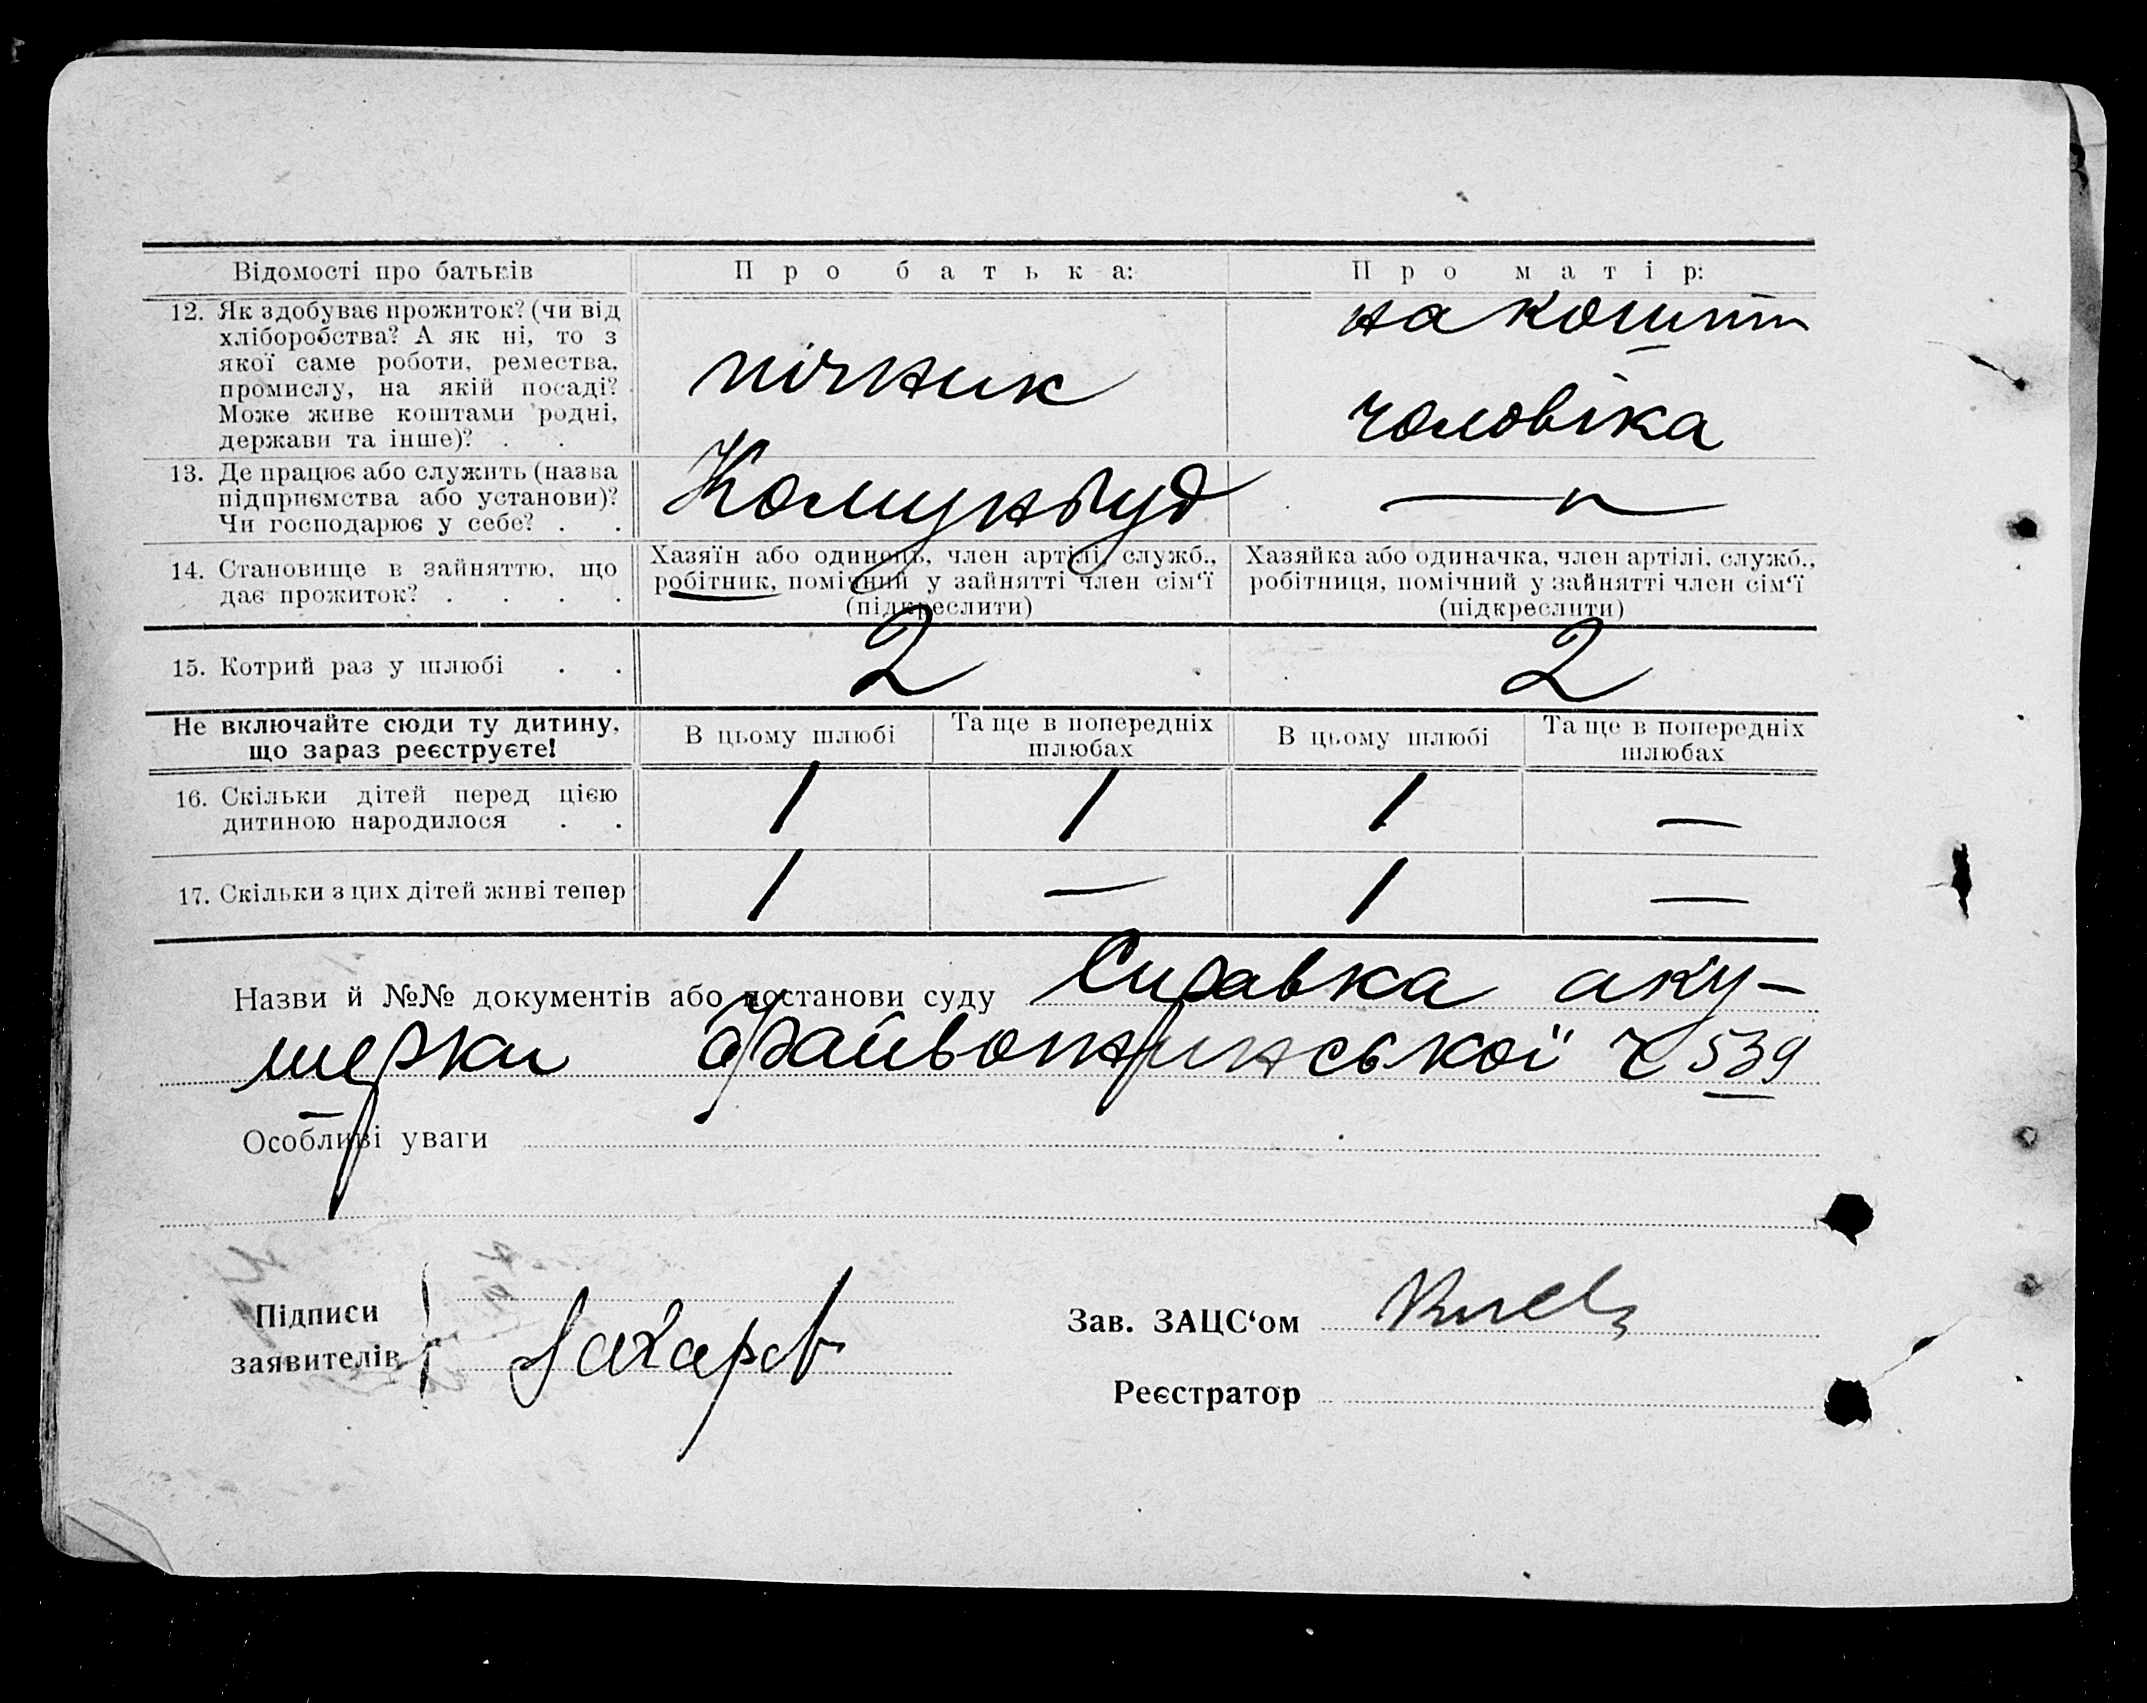 Відомості про батьків
Про батька:
Про матір:
12. Як здобуває прожиток? (чи від
хліборобства? А як ні, то з
якої саме роботи, ремества,
промислу, на якій посаді?
Може живе коштами родні,
держави та інше)? . .
пічник
на кошти
чоловіка
13. Де працює або служить (назва
підприємства або установи)?
Чи господарює у себе? . .
Комунбуд
— " —
14. Становище в зайняттю, що
дає прожиток? . . . .
Хазяїн або одинець, член артілі, служб.,
робітник, помічний у зайнятті член сім'ї
(підкреслити)
Хазяйка або одиначка, член артілі, служб.,
робітниця, помічний у зайнятті член сім'ї
(підкреслити)
15. Котрий раз у шлюбі . .
2
2
Не включайте сюди ту дитину,
що зараз реєструєте!
В цьому шлюбі
Та ще в попередніх
шлюбах
В цьому шлюбі
Та ще в попередніх
шлюбах
16. Скільки дітей перед цією
дитиною народилося . .
1 1 1 —
17. Скільки з цих дітей живі тепер
1 — 1 —
Назви й №№ документів або постанови суду Справка аку-
шерки ч 539
Особливі уваги
Підписи
заявителів
Захаров
Зав. ЗАЦС'ом
Реєстратор